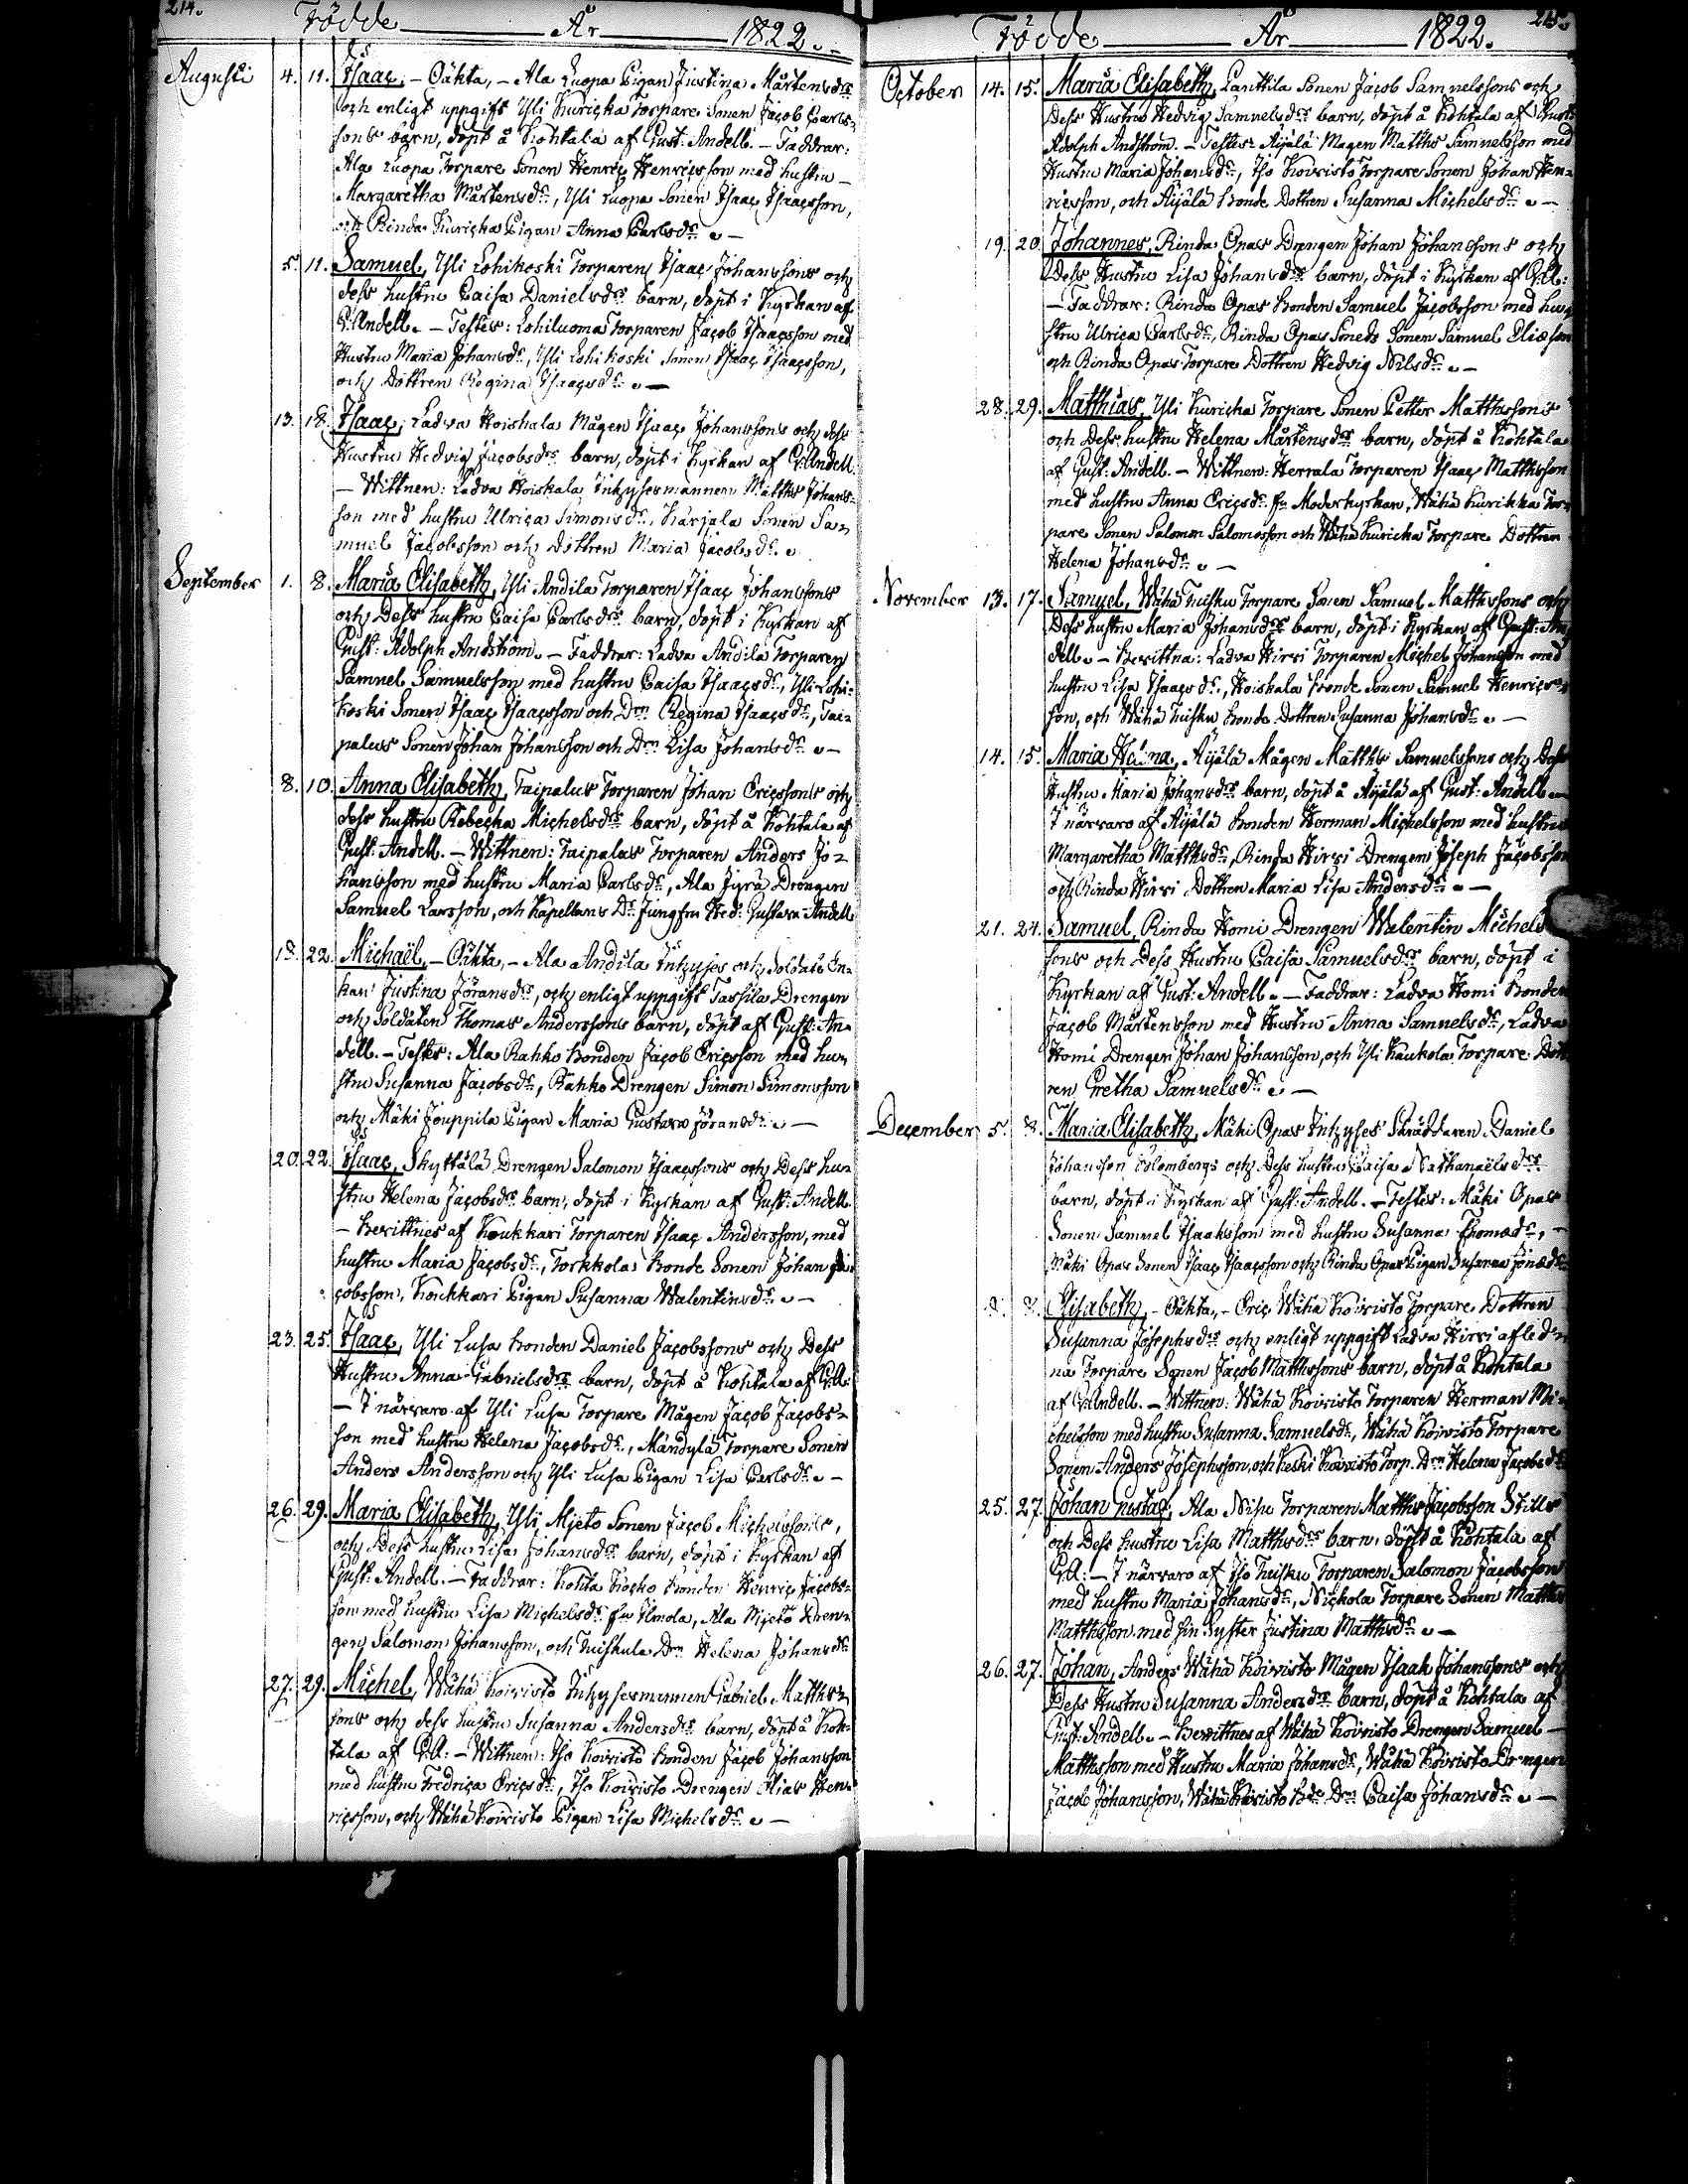 214.
Födde År 1822.
Augusti 4. 11. Isaac, – Oäkta, – Ala Luopa Pigan Justina Mårtensdr
och enligt uppgift Yli Kuricka Torpare Sonen Jacob Carls-
sons barn, döpt å Kohtala af Gust: Andell. – Faddrar:
Ala Luopa Torpare Sonen Henric Henricsson med hustru –
Margaretha Mårtensdr, Yli Luopa Sonen Isaac Isaacsson,
och Rinda Kuricka Pigan Anna Carlsdr. –
5. 11. Samuel, Yli Lohikoski Torparen Isaac Johanssons och
dess hustru Caisa Danielsdr barn, döpt i Kyrkan af
G: Andell. – Testes: Lohiluoma Torparen Jacob Isaacsson med
Hustru Maria Johansdr, Yli Lohikoski Sonen Isaac Isaacsson,
och Dottren Regina Isaacsdr. –
13. 18. Isaac, Ladva Hoiskala Mågen Isaac Johanssons och dess
Hustru Hedvig Jacobsdrs barn, döpt i Kyrkan af G: Andell.
– Wittnen: Ladva Hoiskala Inhysesmannen Matths Johans-
son med hustru Ulrica Simonsdr, Karjala Sonen Sa-
muel Jacobsson och Dottren Maria Jacobsdr.
September 1. 8. Maria Elisabeth, Yli Andila Torparen Isaac Johanssons
och Dess hustru Caisa Carlsdrs barn, döpt i Kyrkan af
Gust: Adolph Andström. – Faddrar: Ladva Andila Torparen
Samuel Samuelsson med hustru Caisa Isaacsdr, Yli Lohi-
koski Sonen Isaac Isaacsson och Drn Regina Isaacsdr, Tai-
palus Sonen Johan Johansson och Drn Lisa Johansdr. –
8. 10. Anna Elisabeth, Taipalus Torparen Johan Ericssons och
dess hustru Rebecka Michelsdrs barn, döpt å Kohtala af
Gust: Andell. – Wittnen: Taipalus Torparen Anders Jo-
hansson med hustru Maria Carlsdr, Ala Jyrä Drengen
Samuel Larsson, och Kapellans Dr Jungfru Hed: Gustava Andell
18. 22. Michaël, – Oäkta, – Ala Andila Inhyses och Soldats En-
kan Justina Jöransdr, och enligt uppgift Tassila Drengen
och Soldaten Thomas Anderssons barn, döpt af Gust: An-
dell. – Testes: Ala Rahko Bonden Jacob Ericsson med hu-
stru Susanna Jacobsdr, Rahko Drengen Simon Simonsson
och Mäki Jouppila Pigan Maria Gustava Jöransdr. –
20. 22. Isaac, Skyttälä Drengen Salomon Isaacssons och Dess hu-
stru Helena Jacobsdrs barn, döpt i Kyrkan af Gust: Andell
– Bevittnes af Koukkari Torparen Isaac Andersson, med
hustru Maria Jacobsdr, Torkkola Bonde Sonen Johan Ja-
cobsson, Koukkari Pigan Susanna Walentinsdr. –
23. 25. Isaac, Yli Lusa Bonden Daniel Jacobssons och Dess
Hustru Anna Gabrielsdrs barn, döpt å Kohtala af G: A:
– I närvaro af Yli Lusa Torpare Mågen Jacob Jacobs-
son med hustru Helena Jacobsdr, Mändylä Torpare Sonen
Anders Andersson och Yli Lusa Pigan Lisa Carlsdr. –
26. 29. Maria Elisabeth, Yli Mjeto Sonen Jacob Michelssons,
och Dess hustru Lisa Johansdrs barn, döpt i Kyrkan af
Gust: Andell. – Faddrar: Kohta Kocko Bonden Henric Jacobs-
son med hustru Lisa Michelsdr fr Ilmola, Ala Mjeto Dren-
gen Salomon Johansson, och Tuiskula Drn Helena Johansdr
27. 29. Michel, Wähä Koivisto Inhysesmannen Gabriel Matths-
sons och dess hustru Susanna Andersdrs barn, döpt å Koh-
tala af G: A: – Wittnen: Iso Koivisto Bonden Jacob Johansson
med hustru Fredrica Ericsdr, Iso Koivisto Drengen Elias Hen-
ricsson, och Wähä Koivisto Pigan Lisa Michelsdr. –
215.
Födde År 1822.
October 14. 15. Maria Elisabeth, Lanttila Sonen Jacob Samuelssons och
Dess Hustru Hedvig Samuelsdrs barn, döpt å Kohtala af Gust:
Adolph Andström. – Testes: Äijälä Mågen Matths Samuelsson med
Hustru Maria Johansdr, Iso Koivisto Torpare Sonen Johan Hen-
ricsson, och Äijälä Bonde Dottren Susanna Michelsdr. –
19. 20. Johannes, Rinda Opas Drengen Johan Johanssons och
Dess Hustru Lisa Johansdrs barn, döpt i Kyrkan af G: A:
– Faddrar: Rinda Opas Bonden Samuel Jacobsson med hu-
stru Ulrica Carlsdr, Rinda Opas Smeds Sonen Samuel Eliæson
och Rinda Opas Torpare Dottren Hedvig Nilsdr. –
28. 29. Matthias, Yli Kuricka Torpare Sonen Petter Matthssons
och Dess hustru Helena Mårtensdrs barn, döpt å Kohtala
af Gust: Andell. – Wittnen: Herrala Torparen Isaac Matthsson
med hustru Anna Ericsdr fr Moderkyrkan, Wähä Kurikka Tor-
pare Sonen Salomon Salomosson och Wähä Kuricka Torpare Dottren
Helena Johansdr. –
November 13. 17. Samuel, Wähä Tuisku Torpare Sonen Samuel Matthssons och
Dess hustru Maria Johansdrs barn, döpt i Kyrkan af Gust: An-
dell. – Bevittna: Ladva Hirvi Torparen Michel Johansson med
hustru Lisa Isaacsdr, Hoiskala Bonde Sonen Samuel Henrics-
son, och Wähä Tuisku Bonde Dottren Susanna Johansdr. –
14. 15. Maria Helena, Äijälä Mågen Matths Samuelssons och Dess
Hustru Maria Johansdrs barn, döpt å Äijälä af Gust: Andell –
I närvaro af Äijälä Bonden Herman Michelsson med hustru
Margaretha Matthsdr, Rinda Hirvi Drengen Joseph Jacobsson
och Rinda Hirvi Dottren Maria Lisa Andersdr. –
21. 24. Samuel, Rinda Homi Drengen Walentin Michels
sons och Dess Hustru Caisa Samuelsdrs barn, döpt i
Kyrkan af Gust: Andell. – Faddrar: Ladva Homi Bonden
Jacob Mårtensson med Hustru Anna Samuelsdr, Ladva
Homi Drengen Johan Johansson, och Yli Kaukola Torpare Dott
ren Gretha Samuelsdr. –
December 5. 8. Maria Elisabeth, Mäki Opas Inhyses Skräddaren Daniel
Johansson och Dess hustru Caisa Nathanaëlsdrs
barn, döpt i Kyrkan af Gust: Andell. – Testes: Mäki Opas
Sonen Samuel Isaaksson med hustru Susanna Thomædr, –
Mäki Opas Sonen Isaac Isaacsson och Rinda Opas Pigan Susanna
8. Elisabeth, – Oäkta, – Eric Wähä Koivisto Torpare Dottren
Susanna Josephsdrs och enligt uppgift Ladva Hirvi afled-
na Torpare Sonen Jacob Matthssons barn, döpt å Kohtala
af G: Andell. – Wittnen: Wähä Koivisto Torparen Herman Mi-
chelsson med hustru Susanna Samuelsdr, Wähä Koivisto Torpare
Sonen Anders Josephsson, och Keski Koivisto Torp. Drn Helena Jacobsdr
25. 27. Johan Gustaf, Ala Nisu Torparen Matths Jacobsson Stills
och Dess hustru Lisa Matthsdrs barn, döpt å Kohtala af
G: A: – I närvaro af Iso Tuisku Torparen Salomon Jacobsson
med hustru Maria Johansdr, Nickola Torpare Sonen Matths
Matthsson med sin Syster Justina Matthsdr. –
26. 27. Johan, Anders Wähä Koivisto Mågen Isaak Johanssons och
Dess Hustru Susanna Andersdrs barn, döpt å Kohtala af
Gust: Andell. – Bevittnes af Wähä Koivisto Drengen Samuel –
Matthsson med Hustru Maria Johansdr, Wähä Koivisto Drengen
Jacob Johansson, Wähä Koivisto Bde Drn Caisa Johansdr. –